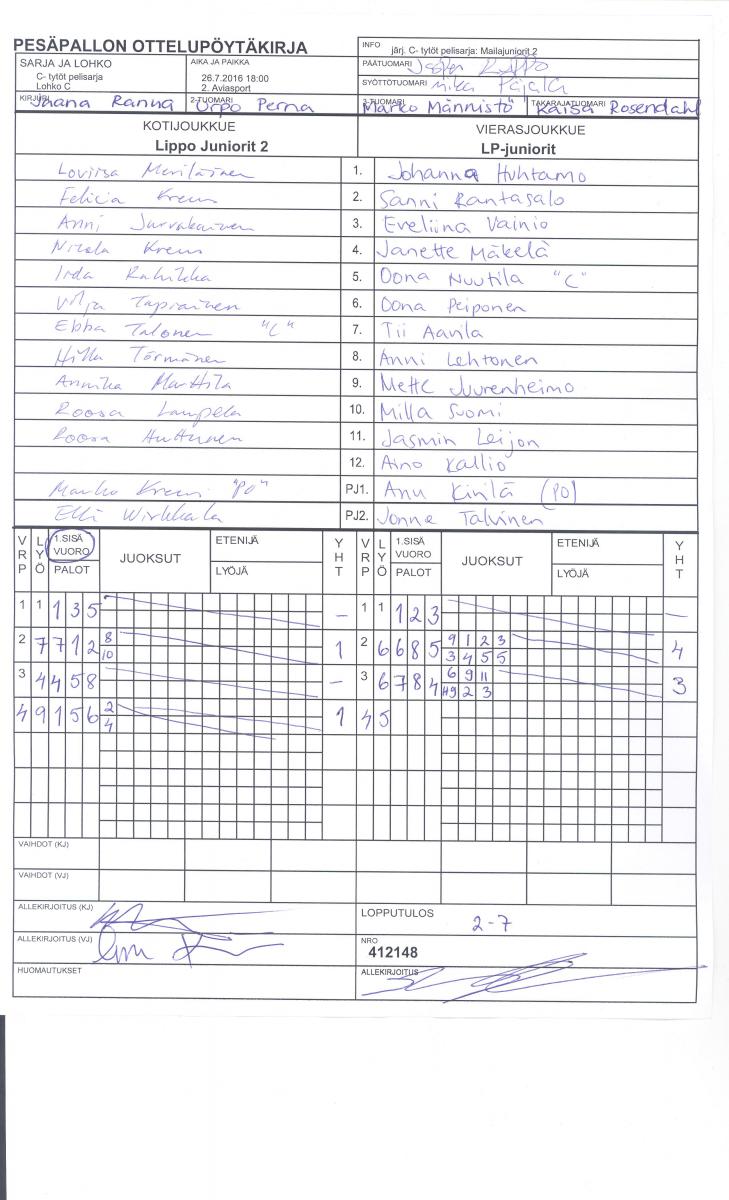 PESÄPALLON OTTELUPÖYTÄKIRJA
INFO järj. C- tytöt pelisarja: Mailajuniorit 2
SARJA JA LOHKO
C- tytöt pelisarja
Lohko C
AIKA JA PAIKKA
26.7.2016 18:00
2. Aviasport
PÄÄTUOMARI
SYÖTTÖTUOMARI Mika
KIRJURI Johana Ranna 2-TUOMARI Urpo Perna 3-TUOMARI Marko Männistö TAKARAJATUOMARI Kaisa Rosendahl
KOTIJOUKKUE VIERASJOUKKUE
Lippo Juniorit 2 LP-juniorit
Loviisa Meriläinen 1. Johanna Huhtamo
Felicia Kreus 2. Sanni Rantasalo
Anni 3. Eveliina Vainio
Nicola Kreus 4. Janette Mäkelä
Iida Rahikka 5. Oona Nuutila "C"
Vilja Tapiainen 6. Oona Peiponen
Ebba Talonen "C" 7. Tii Aavila
Hilla Törmänen 8. Anni Lehtonen
Annika Marttila 9. Mette Juurenheimo
Roosa Lampela 10. Milla Suomi
Roosa Huttunen 11. Jasmin Leijon
12. Aino Kallio
Marko Kreus "PO" PJ1. Anu Kivilä (PO)
Elli Wirkkala PJ2. Jonne Talvinen
VRP LYÖ 1.SISÄ VUORO PALOT JUOKSUT ETENIJÄ LYÖJÄ YHT VRP LYÖ PALOT JUOKSUT ETENIJÄ LYÖJÄ YHT
1 1 1 3 5 – 1 1 1 2 3 –
2 7 7 1 2 8 10 1 2 6 6 8 5 9 1 2 3 3 4 5 5 4
3 4 4 5 8 – 3 6 7 8 4 6 9 11 9 2 3 3
4 9 1 5 6 2 4 1 4 5
VAIHDOT (KJ)
VAIHDOT (VJ)
ALLEKIRJOITUS (KJ)
LOPPUTULOS 2-7
ALLEKIRJOITUS (VJ)
NRO
412148
HUOMAUTUKSET
ALLEKIRJOITUS